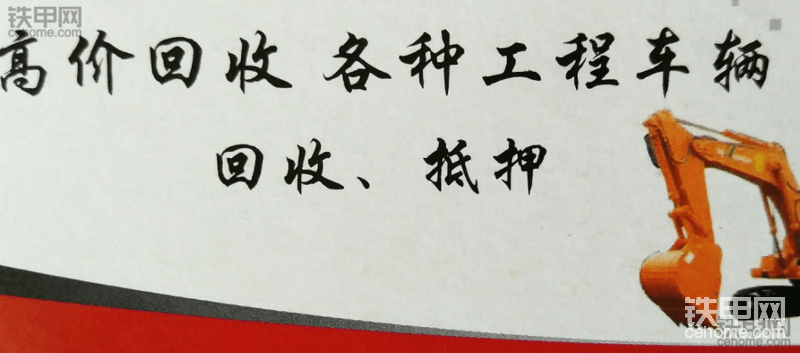 铁甲网
cehome.com
高价回收 各种工程车辆
回收、抵押
铁甲网
cehome.com